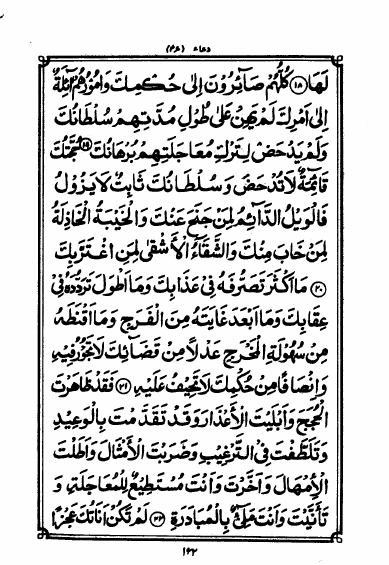 دعاء (٤٦)
لَهَا ﴿١٨﴾ كُلُّهُمْ صَآئِرُوْنَ اِلٰى حُكْمِكَ وَاُمُوْرُهُمْ اٰئِلَةٌ
اِلٰى اَمْرِكَ لَمْ يَهِنْ عَلٰى طُوْلِ مُدَّتِهِمْ سُلْطَانُكَ
وَلَمْ يَدْحَضْ لِتَرْكِ مُعَاجَلَتِهِمْ بُرْهَانُكَ ﴿١٩﴾ حُجَّتُكَ
قَآئِمَةٌ لَا تُدْحَضُ وَسُلْطَانُكَ ثَابِتٌ لَا يَزُوْلُ
فَالْوَيْلُ الدَّآئِمُ لِمَنْ جَنَحَ عَنْكَ وَالْخَيْبَةُ الْخَاذِلَةُ
لِمَنْ خَابَ مِنْكَ وَالشَّقَآءُ الْاَشْقٰى لِمَنِ اغْتَرَّ بِكَ
﴿٢٠﴾ مَا اَكْثَرَ تَصَرُّفَهُ فِيْ عَذَابِكَ وَمَا اَطْوَلَ تَرَدُّدَهُ فِيْ
عِقَابِكَ وَمَا اَبْعَدَ غَايَتَهُ مِنَ الْفَرَجِ وَمَا اَقْنَطَهُ
مِنْ سُهُوْلَةِ الْمَخْرَجِ عَدْلًا مِنْ قَضَآئِكَ لَا تَجُوْرُ فِيْهِ
وَاِنْصَافًا مِنْ حُكْمِكَ لَا تَحِيْفُ عَلَيْهِ ﴿٢١﴾ فَقَدْ ظَاهَرْتَ
الْحُجَجَ وَاَبْلَيْتَ الْاَعْذَارَ وَقَدْ تَقَدَّمْتَ بِالْوَعِيْدِ
وَتَلَطَّفْتَ فِي التَّرْغِيْبِ وَضَرَبْتَ الْاَمْثَالَ وَاَطَلْتَ
الْاِمْهَالَ وَاَخَّرْتَ وَاَنْتَ مُسْتَطِيْعٌ لِلْمُعَاجَلَةِ وَ
تَاَنَّيْتَ وَاَنْتَ مَلِيٌّ بِالْمُبَادَرَةِ ﴿٢٢﴾ لَمْ تَكُنْ اَنَاتُكَ عَجْزًا
١٦٢